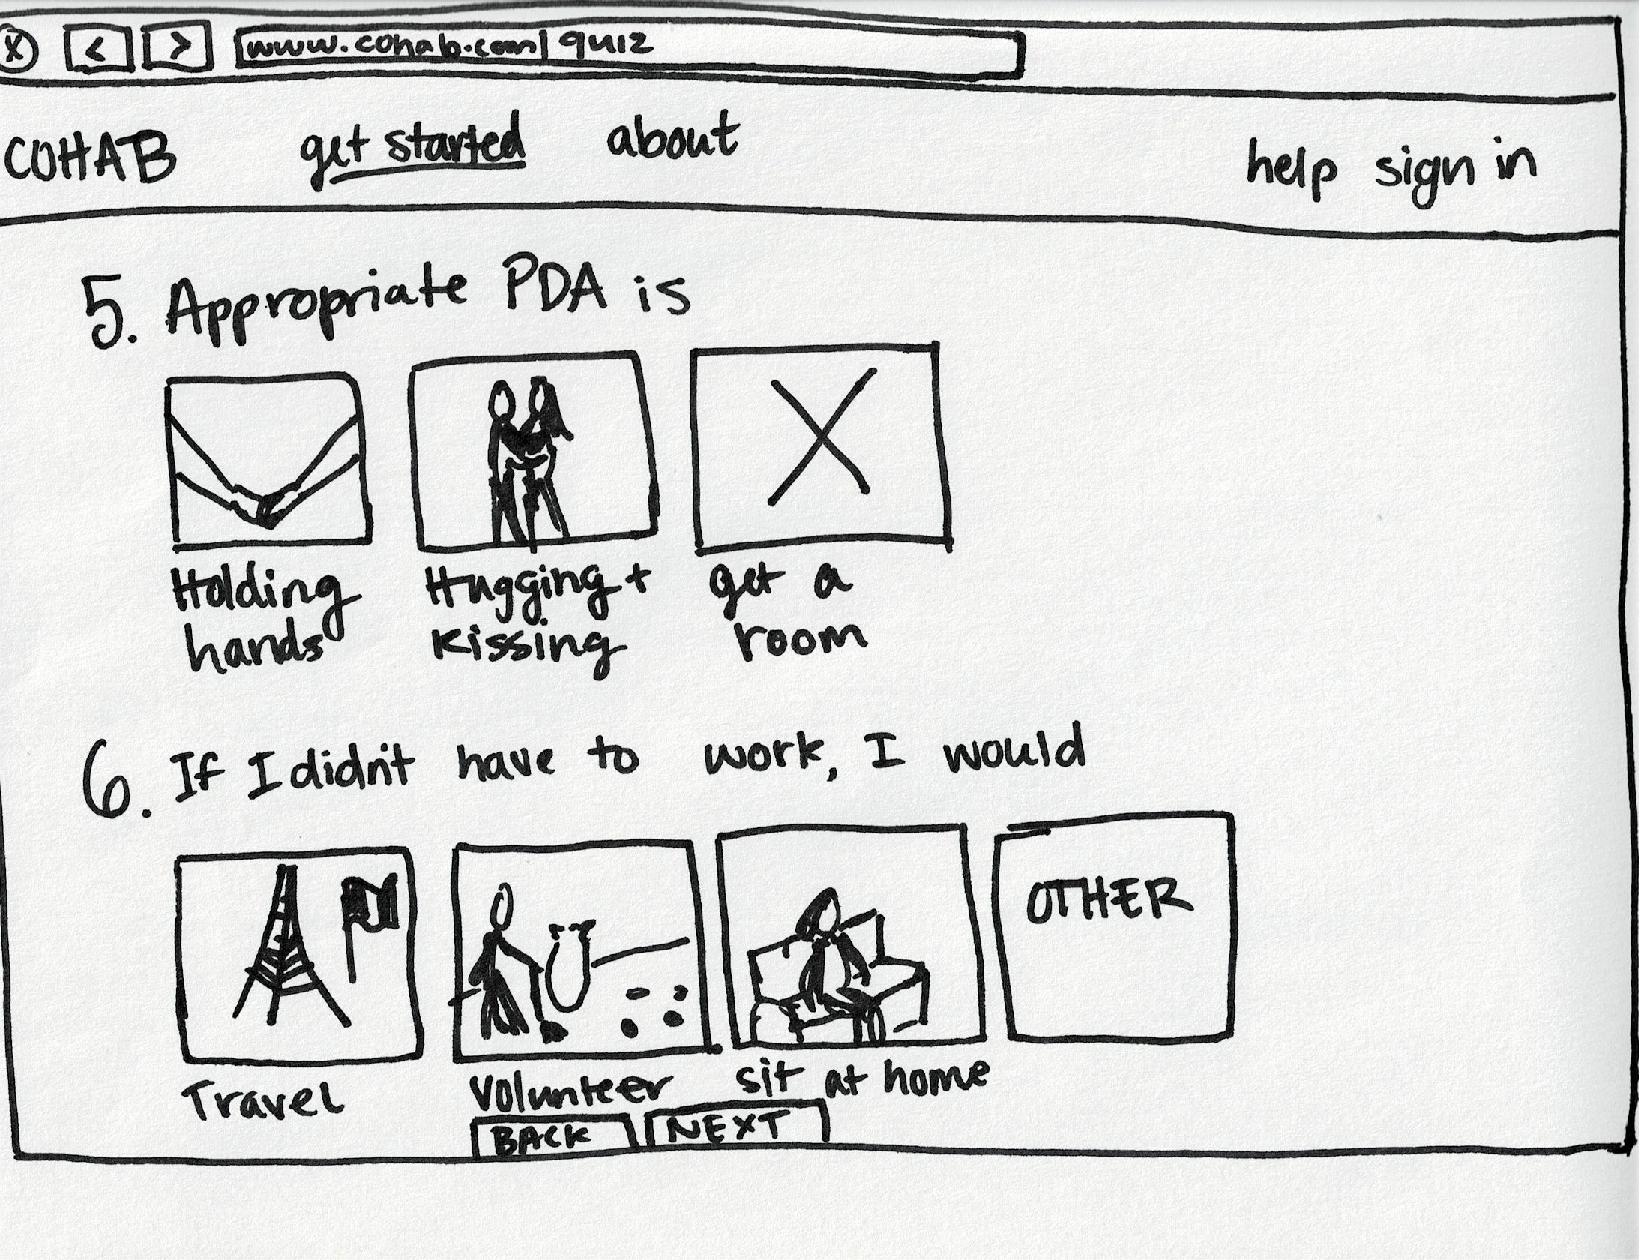 X < > www.cohab.com/quiz
COHAB get started about help sign in
5. Appropriate PDA is
Holding hands
Hugging + Kissing
get a room
6. If I didn't have to work, I would
OTHER
Travel
Volunteer
sit at home
BACK NEXT